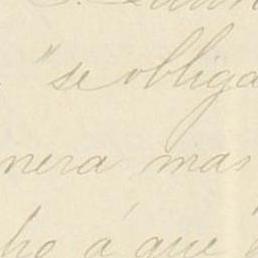 " se obliga
nera mas
ho á que